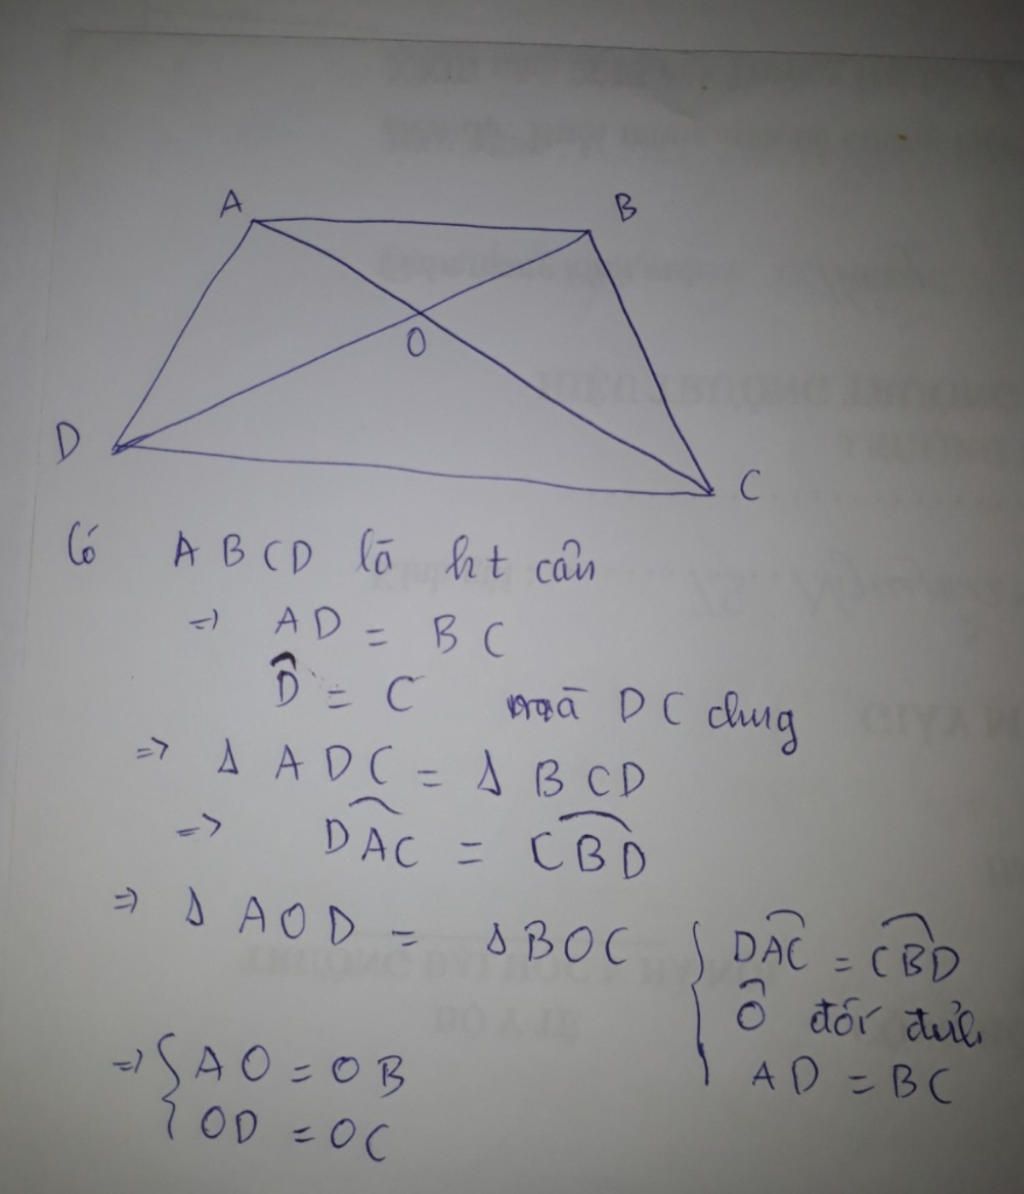 A
B
O
D
C
Có ABCD là ht cân
=> AD = BC
D̂ = C mà DC chung
=> Δ ADC = Δ BCD
=> DAC = CBD
=> Δ AOD = Δ BOC { DAC = CBD
Ô đối đỉnh
AD = BC
=> { AO = OB
OD = OC